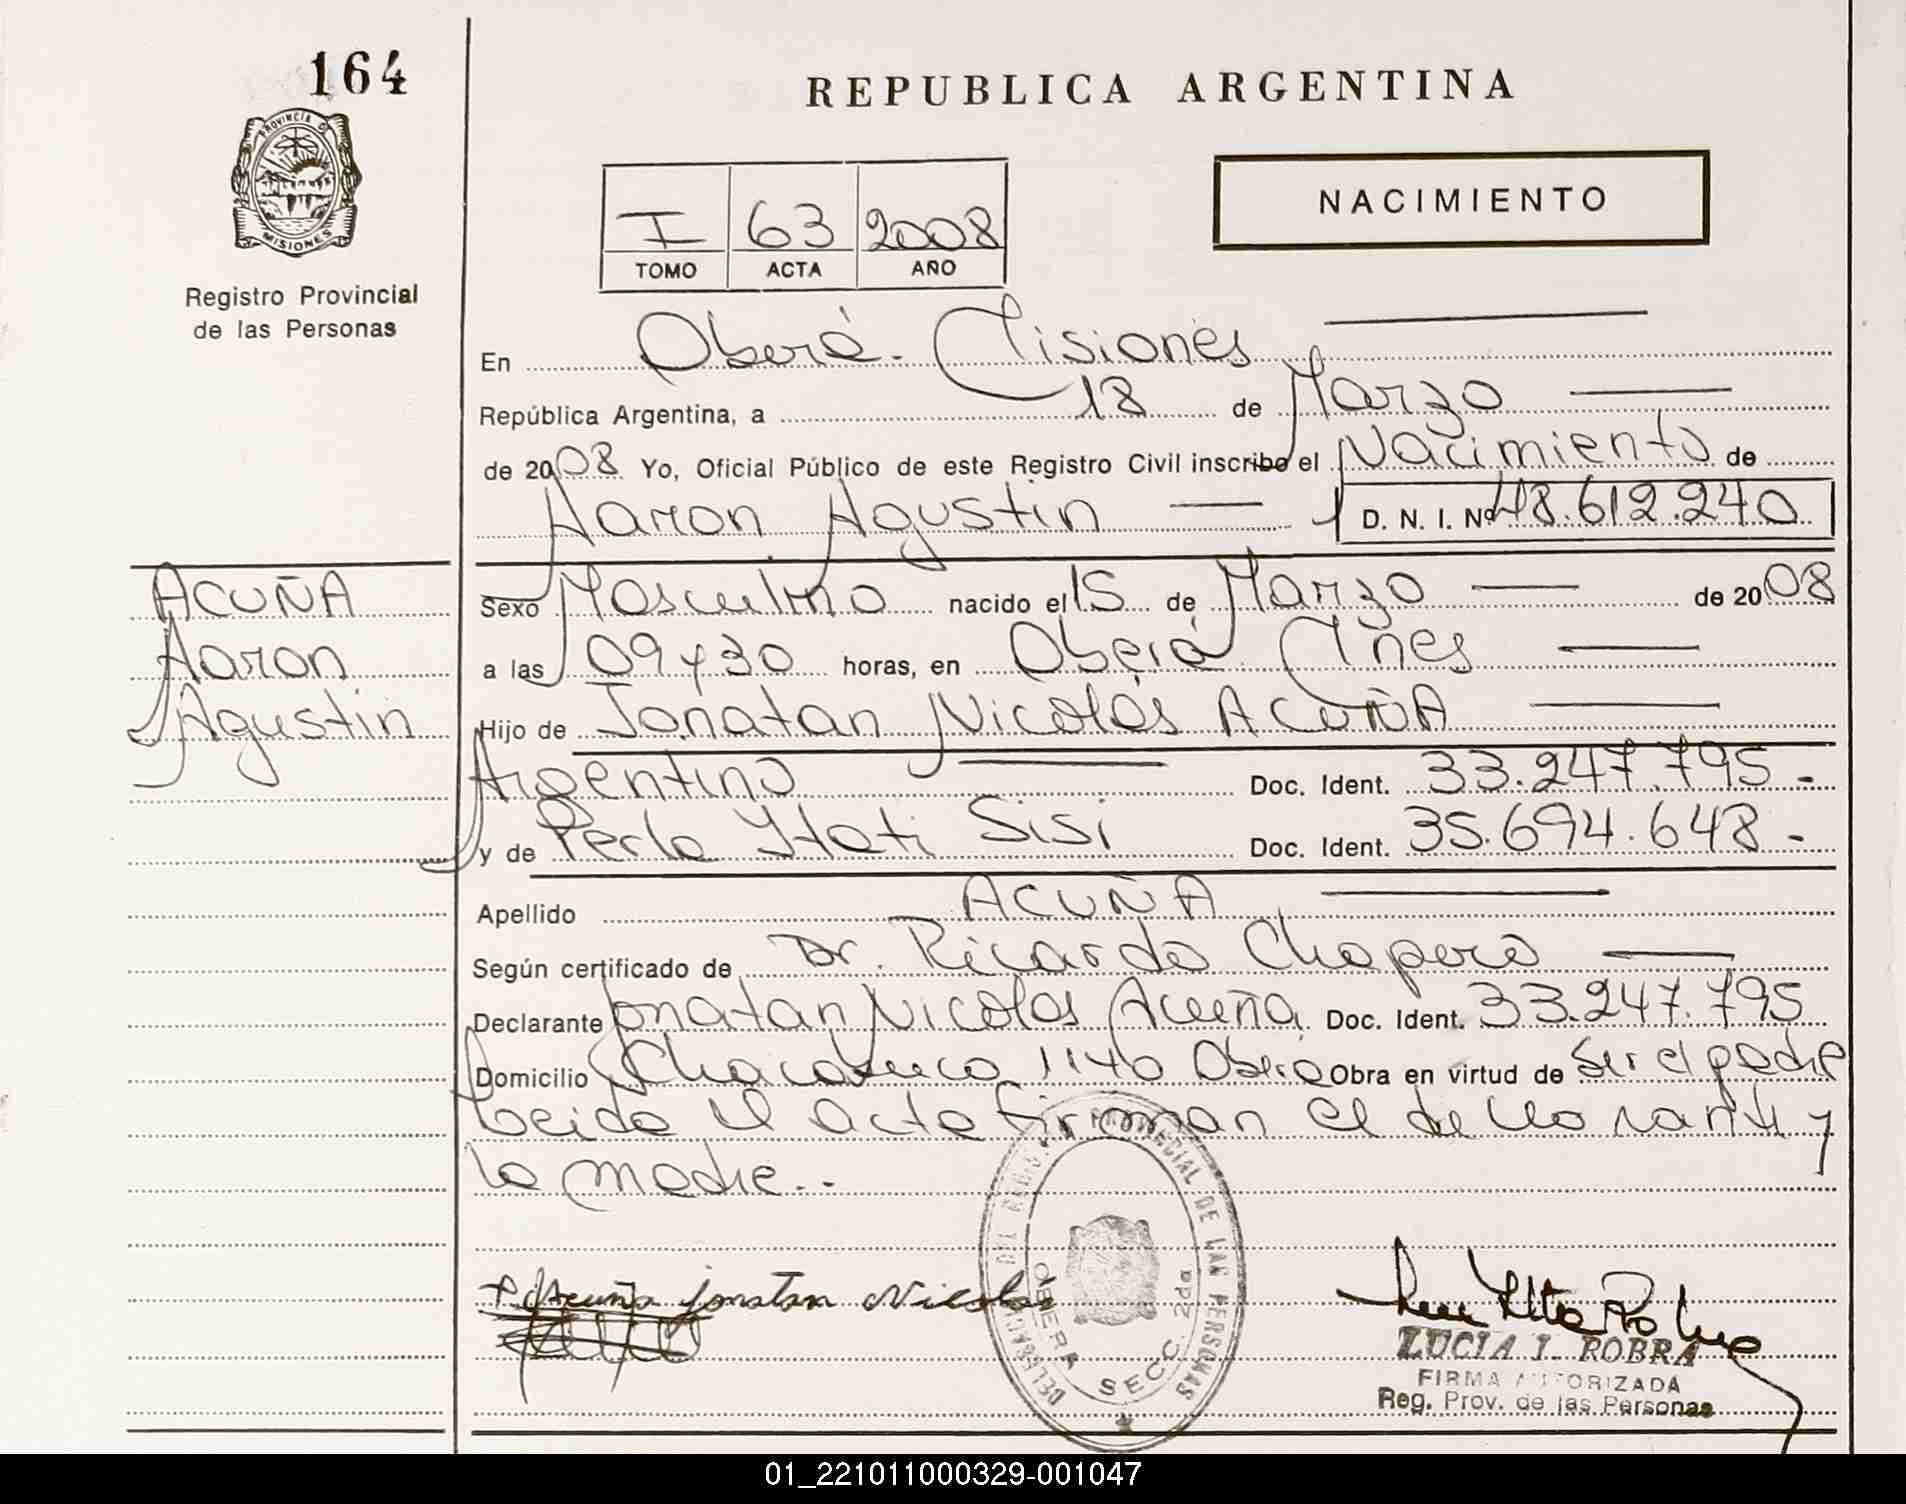 164
REPUBLICA ARGENTINA
PROVINCIA DE
MISIONES
Registro Provincial
de las Personas
I 63 2008
TOMO ACTA AÑO
NACIMIENTO
En Oberá - Misiones
República Argentina, a 18 de Marzo
de 2008 Yo, Oficial Público de este Registro Civil inscribo el Nacimiento de
Aaron Agustin D. N. I. Nº 48.612.240
ACUÑA
Aaron
Agustin
Sexo Masculino nacido el 15 de Marzo de 2008
a las 09 y 30 horas, en Oberá Mnes
Hijo de Jonatan Nicolás ACUÑA
Argentino Doc. Ident. 33.247.795-
y de Perla Itati Sisi Doc. Ident. 35.694.648-
Apellido ACUÑA
Según certificado de Dr. Ricardo Chapero
Declarante Jonatan Nicolas Acuña Doc. Ident. 33.247.795
Domicilio Chacabuco 1140 Oberá Obra en virtud de ser el padre
Leida el acta firman el declarante y
la madre..
Acuña Jonatan Nicolas
DELEGACION DEL REGISTRO PROVINCIAL DE LAS PERSONAS
OBERA SECC. 2da
LUCIA I. ROBRA
FIRMA AUTORIZADA
Reg. Prov. de las Personas
01_221011000329-001047